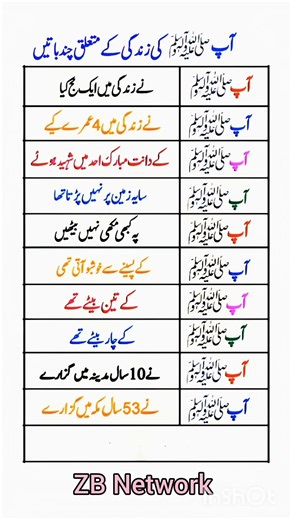 آپ ﷺ کی زندگی کے متعلق چند باتیں
آپ ﷺ نے زندگی میں ایک حج کیا
آپ ﷺ نے زندگی میں 4 عمرے کیے
آپ ﷺ کے دانت مبارک احد میں شہید ہوئے
آپ ﷺ سایہ زمین پر نہیں پڑتا تھا
آپ ﷺ پہ کبھی مکھی نہیں بیٹھیں
آپ ﷺ کے پسینے سے خوشبو آتی تھی
آپ ﷺ کے تین بیٹے تھے
آپ ﷺ کے چار بیٹے تھے
آپ ﷺ نے 10 سال مدینہ میں گزارے
آپ ﷺ نے 53 سال مکہ میں گزارے
ZB Network
InShot